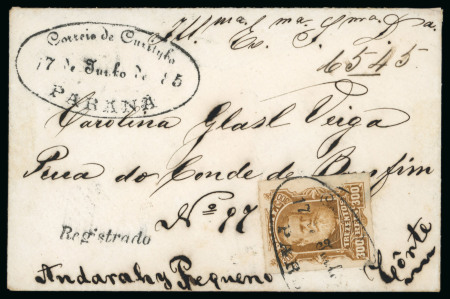 Correio de Curityba
17 de Junho de 85
PARANÁ
Illma. Exma. Snra. Da.
6545.
Carolina Glasl Veiga
Rua do Conde de Bomfim
Nº 87
Registrado
300 TREZENTOS RÉIS 300
Andarahy Pequeno
Côrte